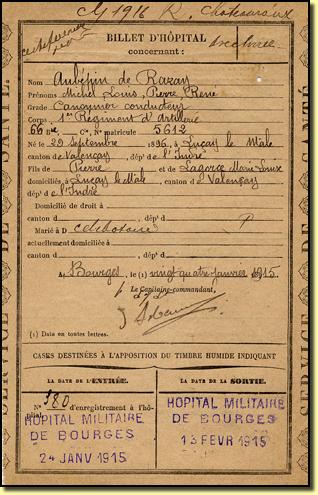 Cl 1916 R. Chateauroux
BILLET D'HÔPITAL
concernant :
Nom Aubépin de Razay
Prénoms Michel Louis, Pierre René
Grade Canonnier conducteur
Corps 1er Régiment d'Artillerie
66 Bie, Cie, No matricule 5612
Né le 29 Septembre 1896, à Luçay le Mâle
canton de Valençay, dépt de l'Indre
Fils de Pierre et Lagorce Marie Loux
domiciliés à Luçay le Mâle, canton de Valençay
dépt de l'Indre
Domicilié de droit à
canton d , dépt d
Marié à D célibataire
actuellement domiciliée à
canton d , dépt d
A Bourges, le (1) vingt quatre janvier 1915
Le Capitaine-commandant,
(1) Date en toutes lettres.
CASES DESTINÉES A L'APPOSITION DU TIMBRE HUMIDE INDIQUANT
LA DATE DE L'ENTRÉE.
LA DATE DE LA SORTIE.
No 380 d'enregistrement à l'hôpital
HOPITAL MILITAIRE
DE BOURGES
24 JANV 1915
HOPITAL MILITAIRE
DE BOURGES
13 FEVR 1915
SERVICE DE SANTÉ.
SERVICE DE SANTÉ.